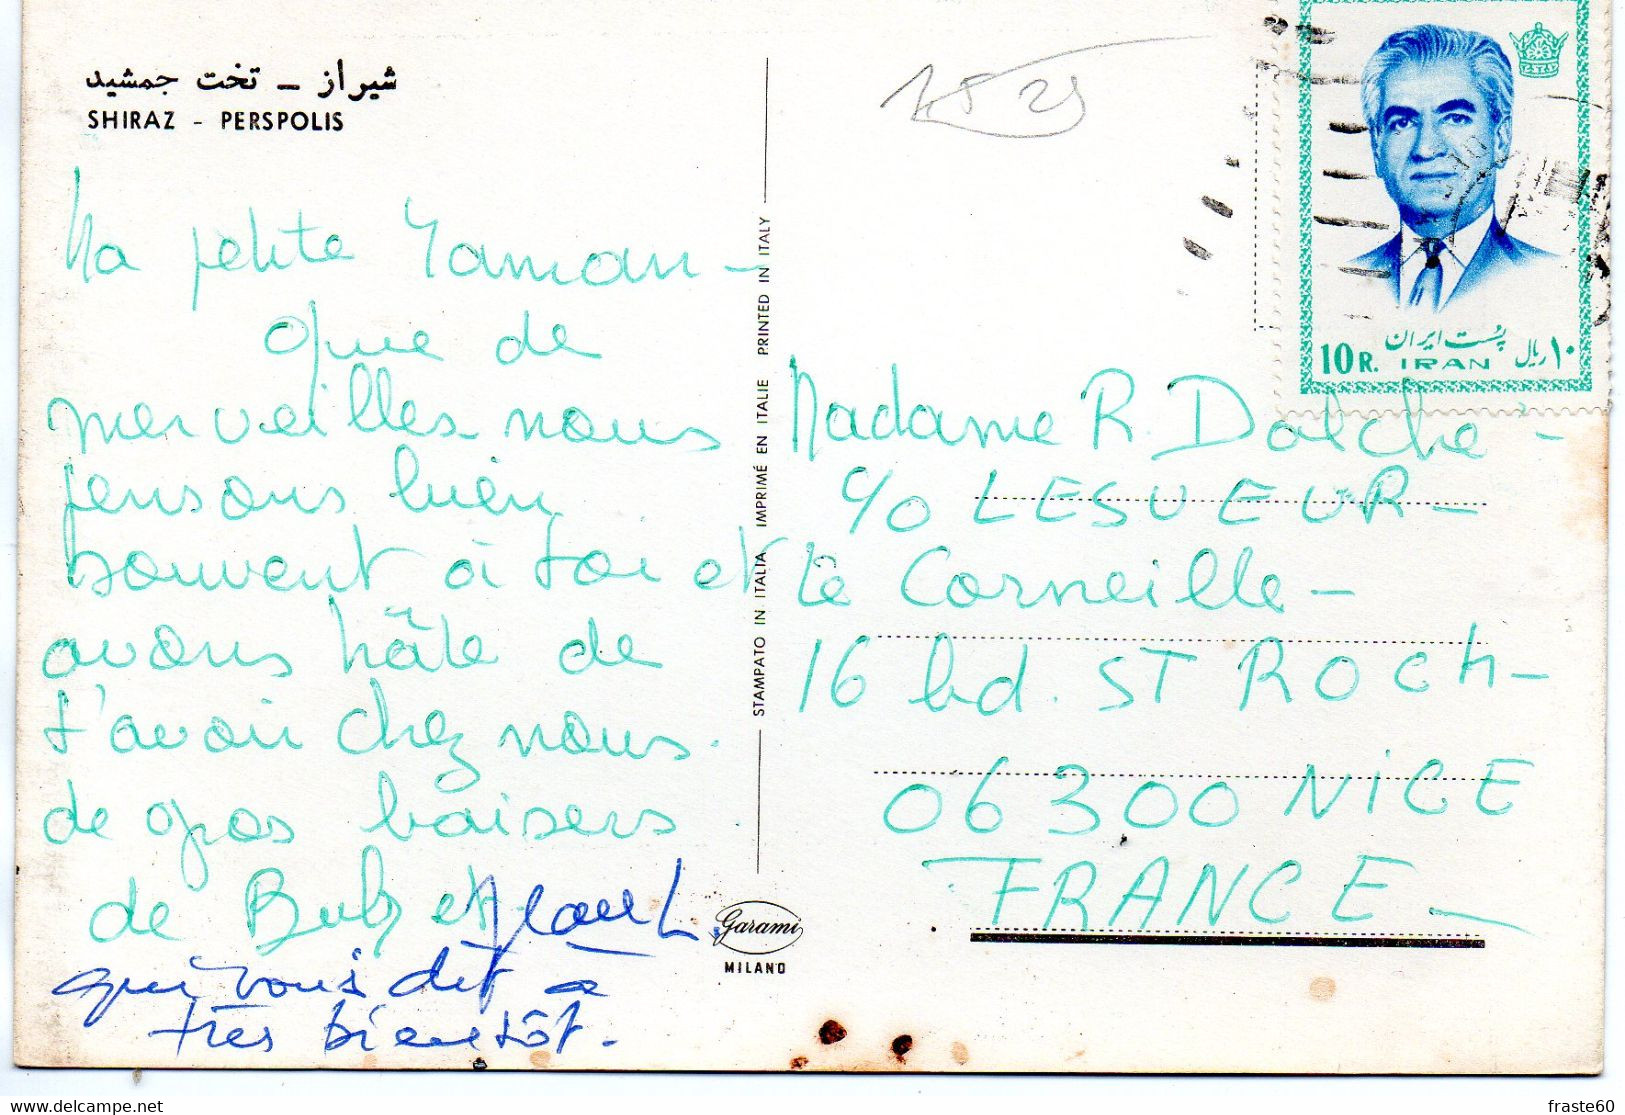 شيراز – تخت جمشيد
SHIRAZ - PERSPOLIS
Ma petite Maman –
Que de
merveilles nous
pensons bien
souvent à toi et
avons hâte de
t'avoir chez nous.
de gros baisers
de Buby et
qui vous dit a
très bientôt.
STAMPATO IN ITALIA IMPRIMÉ EN ITALIE PRINTED IN ITALY
Garami
MILANO
پست ایران
10 R. IRAN ۱۰ ریال
Madame R. Dalche –
c/o LESUEUR –
Le Corneille –
16 bd. ST ROCH –
06300 NICE
FRANCE –
delcampe.net
fraste60